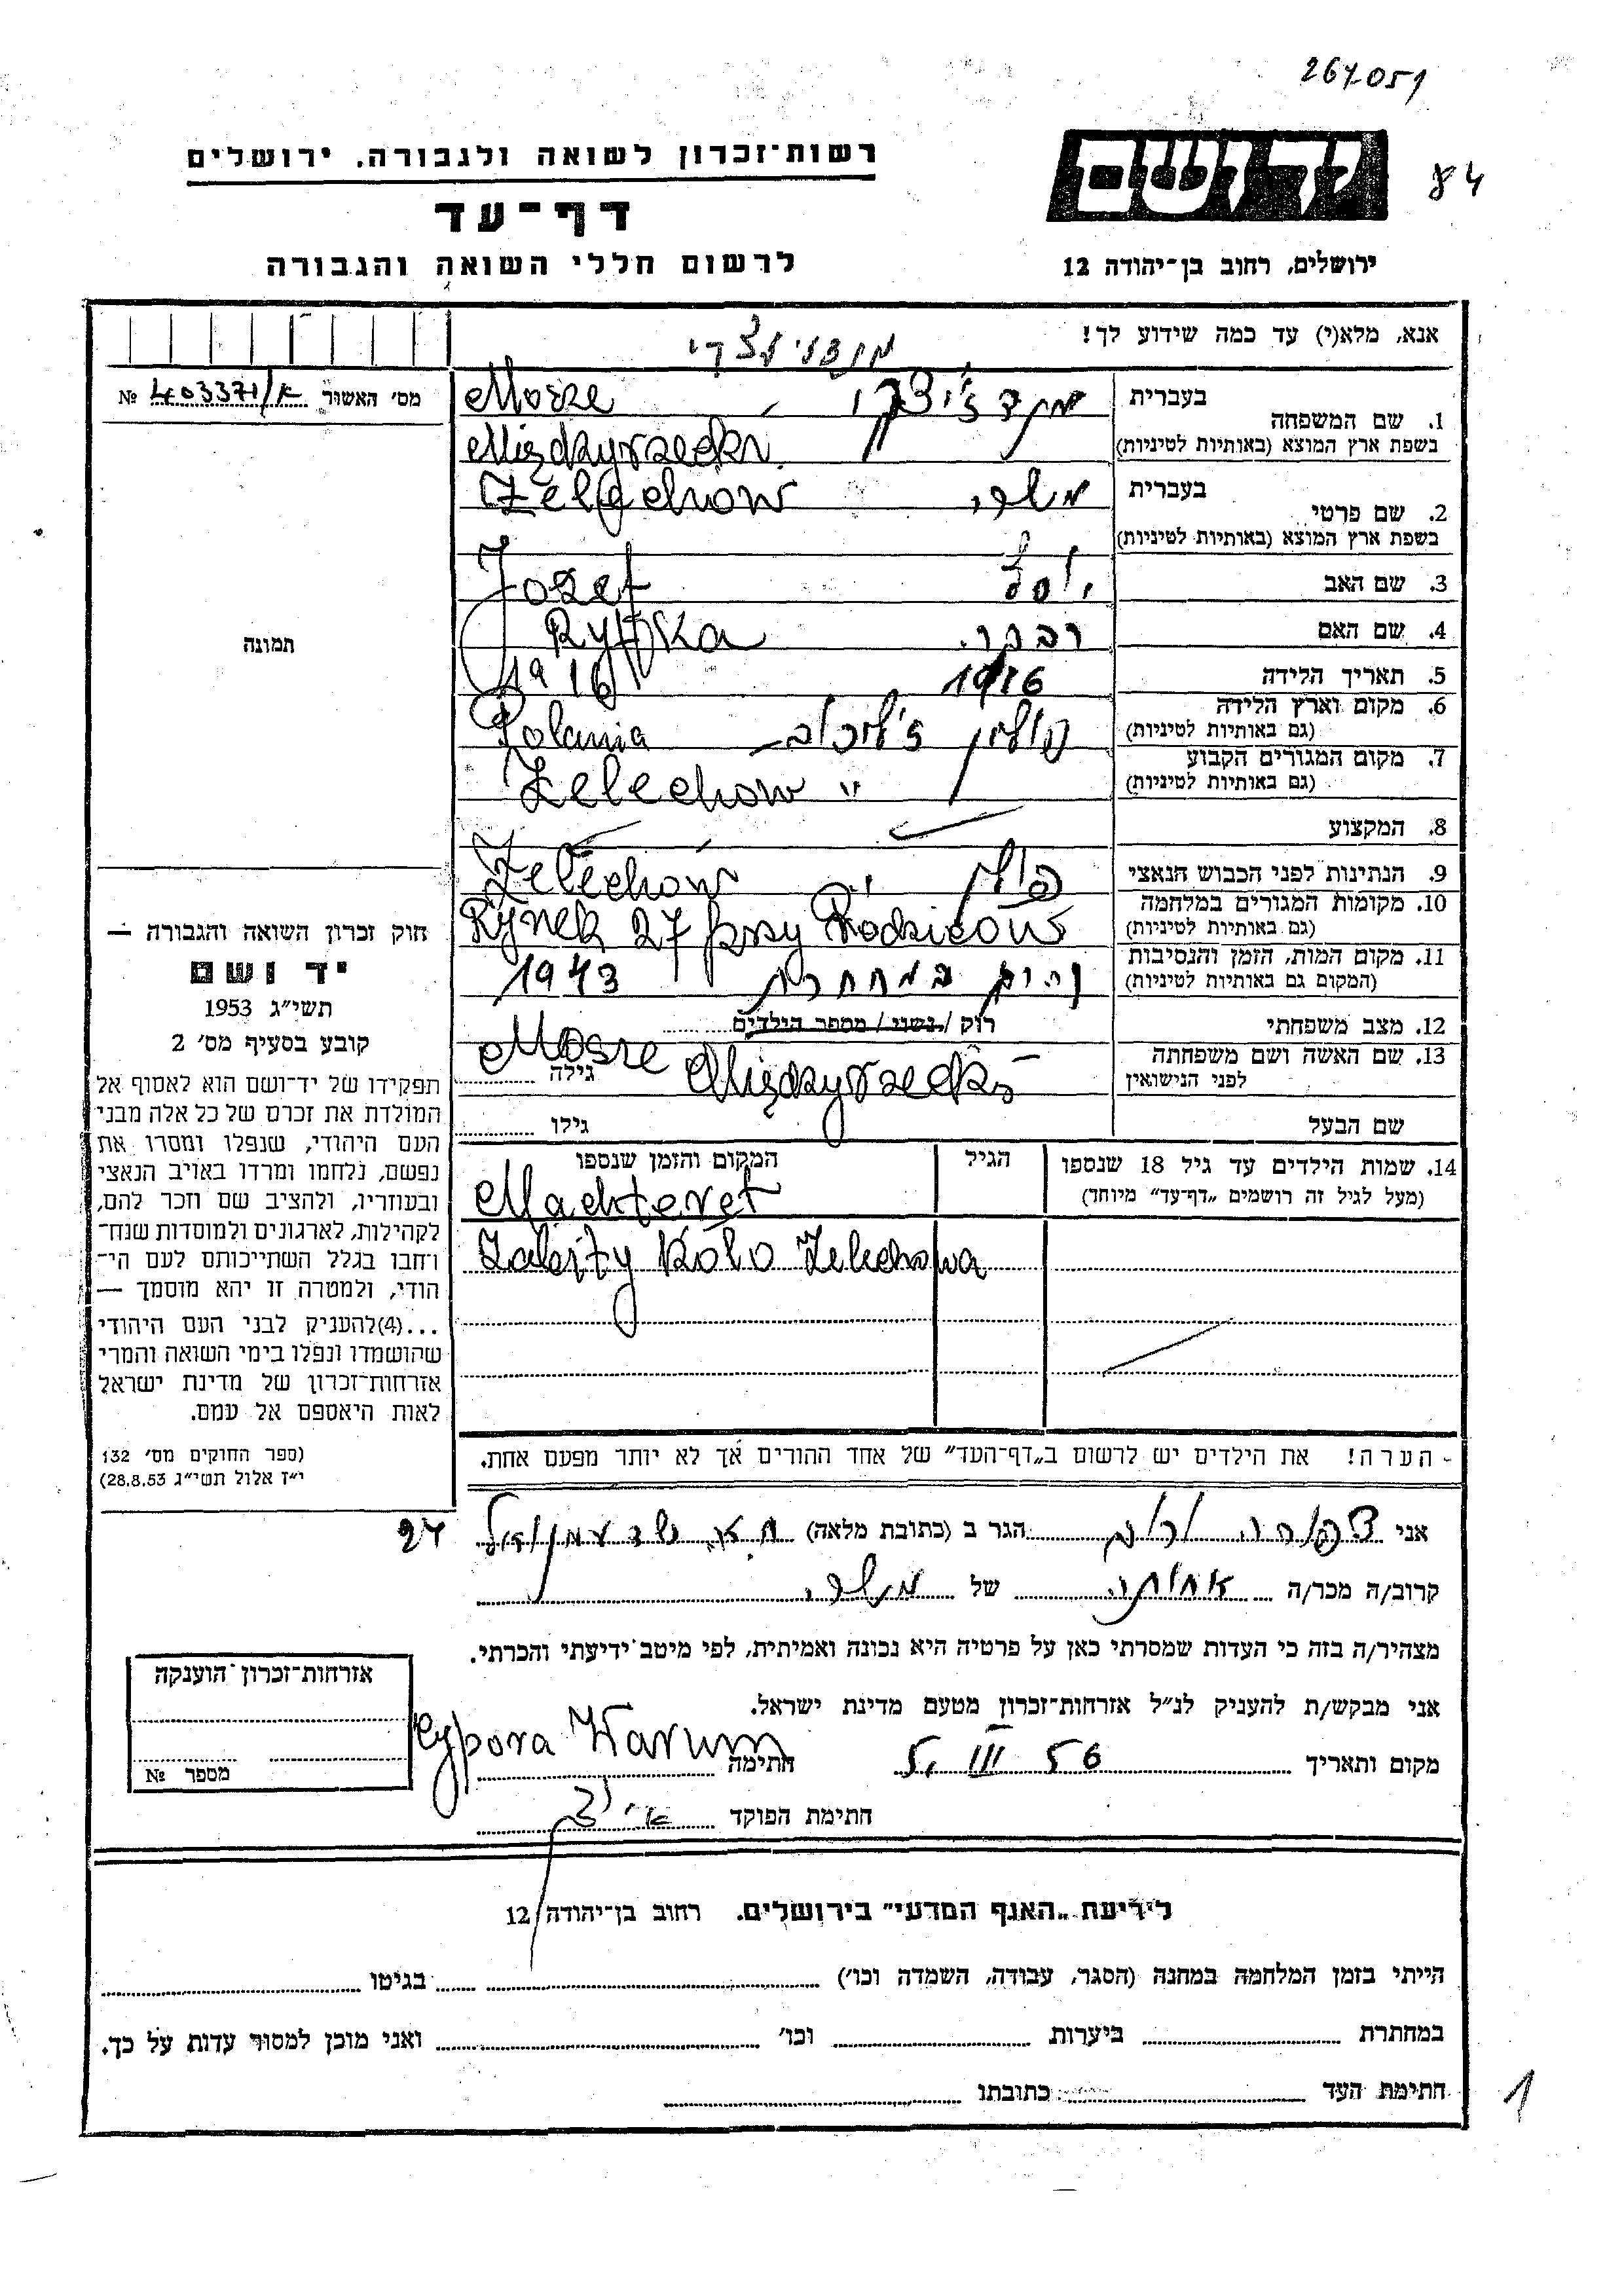 267051
84
רשות־זכרון לשואה ולגבורה, ירושלים
דף־עד
לרשום חללי השואה והגבורה
ידושם
ירושלים, רחוב בן־יהודה 12
אנא, מלא(י) עד כמה שידוע לך!
מס׳ האשור 403371/א №
תמונה
1. שם המשפחה
בעברית
Mosze
בשפת ארץ המוצא (באותיות לטיניות)
Międzyrzecki
2. שם פרטי
בעברית משה
Żelechow
בשפת ארץ המוצא (באותיות לטיניות)
3. שם האב יוסף Jozef
4. שם האם רבקה Ryfka
5. תאריך הלידה 1916 1916
6. מקום וארץ הלידה
(גם באותיות לטיניות)
פולין ז'לכוב Polania
7. מקום המגורים הקבוע
(גם באותיות לטיניות)
" Żelechow
8. המקצוע
9. הנתינות לפני הכבוש הנאצי פולין Żelechow
10. מקומות המגורים במלחמה
(גם באותיות לטיניות)
Rynek 27 przy Rodzicow
11. מקום המות, הזמן והנסיבות
(המקום גם באותיות לטיניות)
1943
12. מצב משפחתי רוק / נשוי / מספר הילדים
13. שם האשה ושם משפחתה
לפני הנישואין
גילה
Mosze Międzyrzecki
שם הבעל גילו
14. שמות הילדים עד גיל 18 שנספו
(מעל לגיל זה רושמים „דף־עד" מיוחד)
הגיל
המקום והזמן שנספו
Machteret
Koło Żelechowa
הערה! את הילדים יש לרשום ב„דף־העד" של אחד ההורים אך לא יותר מפעם אחת.
חוק זכרון השואה והגבורה —
יד ושם
תשי״ג 1953
קובע בסעיף מס׳ 2
תפקידו של יד־ושם הוא לאסוף אל
המולדת את זכרם של כל אלה מבני
העם היהודי, שנפלו ומסרו את
נפשם, נלחמו ומרדו באויב הנאצי
ובעוזריו, ולהציב שם וזכר להם,
לקהילות, לארגונים ולמוסדות שנח־
רחבו בגלל השתייכותם לעם הי־
הודי, ולמטרה זו יהא מוסמך —
...(4)להעניק לבני העם היהודי
שהושמדו ונפלו בימי השואה והמרי
אזרחות־זכרון של מדינת ישראל
לאות היאספם אל עמם.
(ספר החוקים מס׳ 132
י״ז אלול תשי״ג 28.8.53)
אני צפורה הגר ב (כתובת מלאה) 27
קרוב/ה מכר/ה אחותה של משה
מצהיר/ה בזה כי העדות שמסרתי כאן על פרטיה היא נכונה ואמיתית, לפי מיטב ידיעתי והכרתי.
אני מבקש/ת להעניק לנ״ל אזרחות־זכרון מטעם מדינת ישראל.
מקום ותאריך 5. III 56 חתימה Cypora Warum
חתימת הפוקד
אזרחות־זכרון הוענקה
מספר №
לידיעת „האגף המדעי" בירושלים. רחוב בן־יהודה 12
הייתי בזמן המלחמה במחנה (הסגר, עבודה, השמדה וכו׳) בגיטו
במחתרת ביערות וכו׳ ואני מוכן למסור עדות על כך.
חתימת העד כתובתו
1